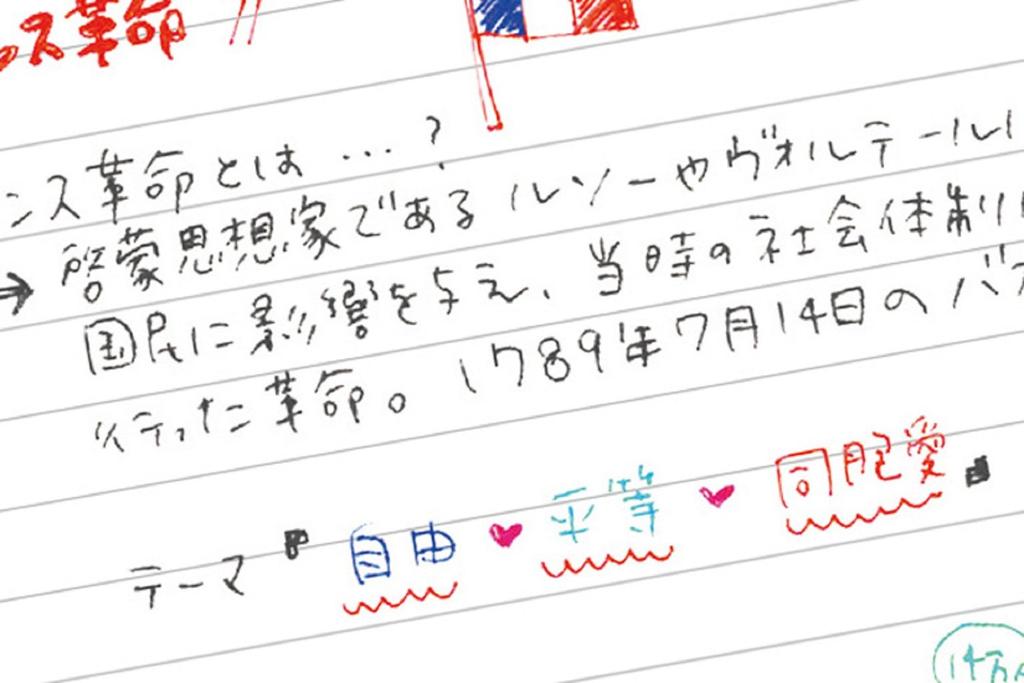 ス革命
ンス革命とは…?
→ 啓蒙思想家である ルソーやヴォルテール
国民に影響を与え、当時の社会体制
行った革命。1789年7月14日のバ
テーマ『自由♥平等♥同胞愛』
14万